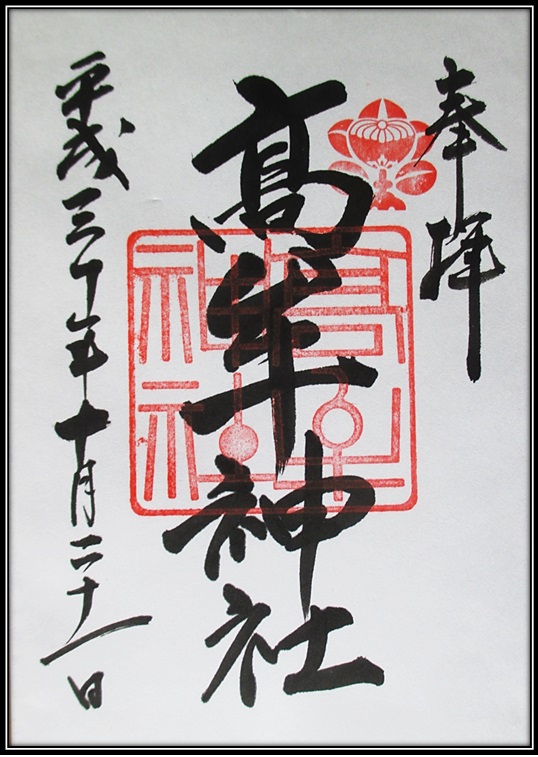 奉拝
髙牟神社
平成三十年十月二十一日